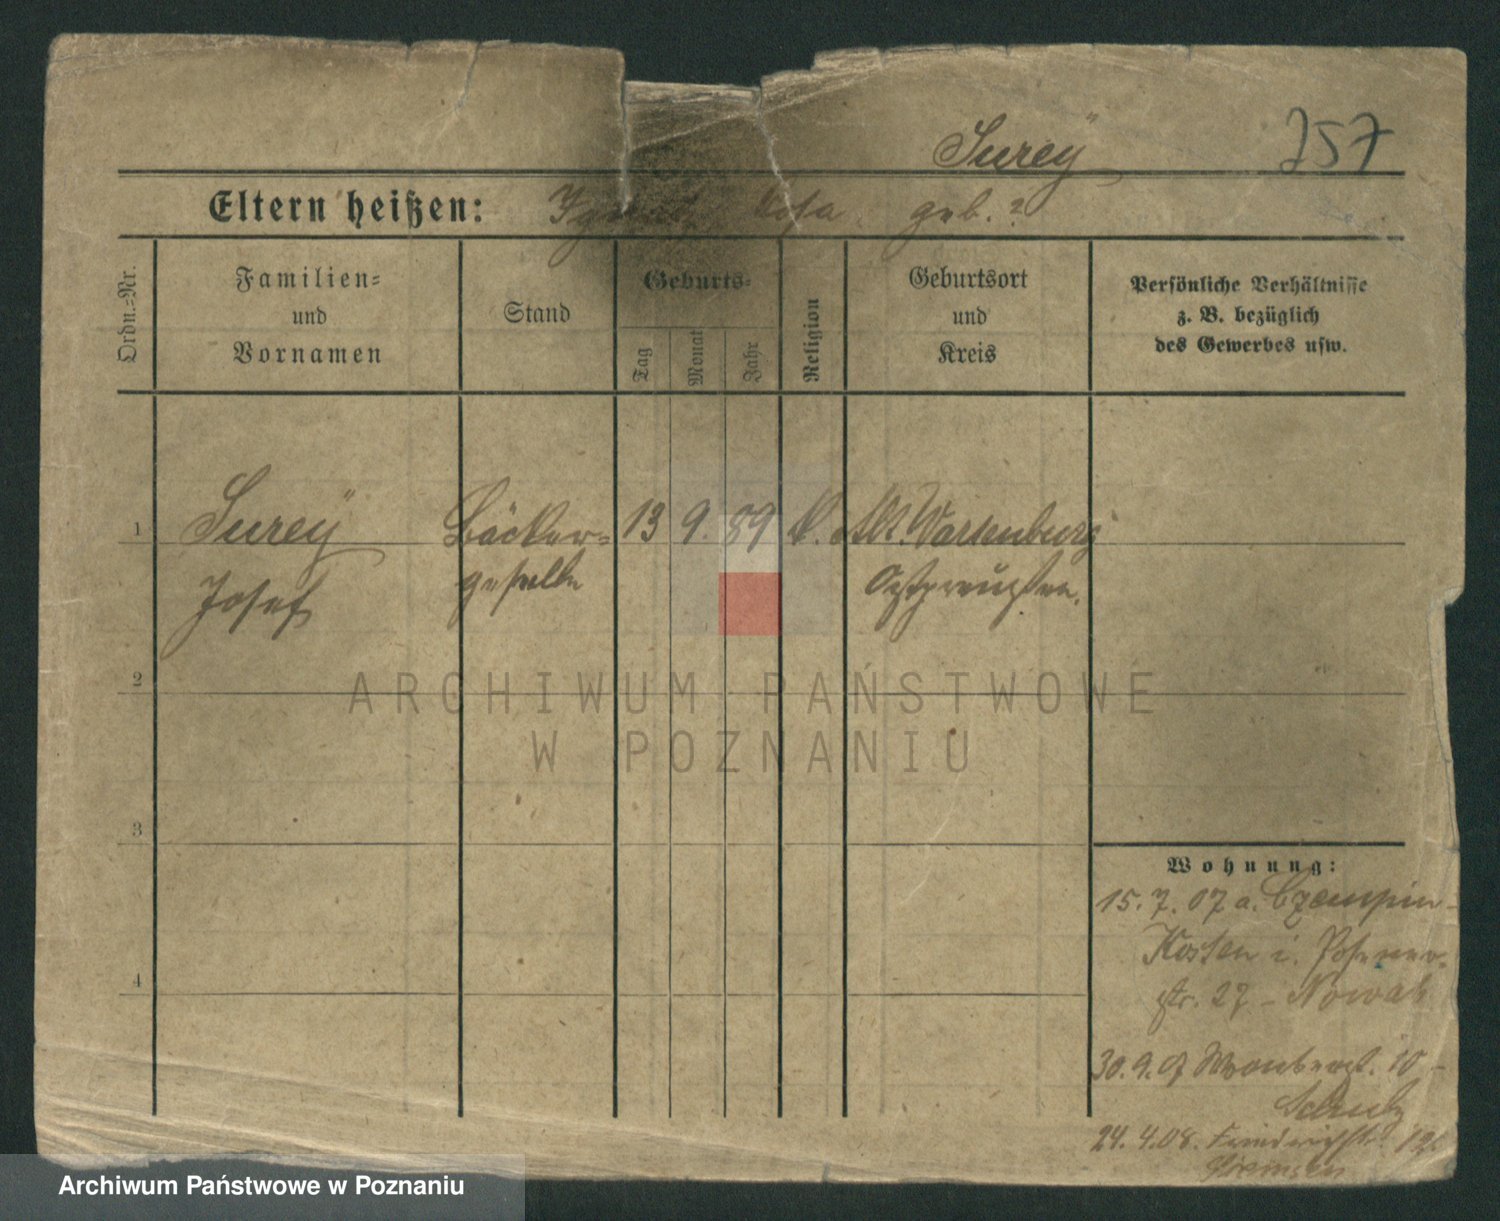 Surey
257
Eltern heißen: Ignatz, Rosa geb. ?
Ordn.-Nr.
Familien-
und
Vornamen
Stand
Geburts-
Tag
Monat
Jahr
Religion
Geburtsort
und
Kreis
Persönliche Verhältnisse
z. B. bezüglich
des Gewerbes usw.
1 Surey Bäcker- 13 9. 89 k. Alt. Wartenburg
Josef geselle Ostpreußen.
2
3
4
Wohnung:
15. 7. 07 a. Czempin-
Kosten i. Posener-
str. 27 - Nowak
30. 9. 07 10 -
Schulz
24. 4. 08. Friedrichstr. 12.
ARCHIWUM PAŃSTWOWE
W POZNANIU
Archiwum Państwowe w Poznaniu